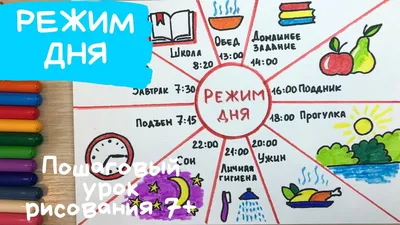 РЕЖИМ
ДНЯ
Школа
8:20
Обед
13:00
Домашнее
задание
14:00
Завтрак 7:30
16:00 Поддник
РЕЖИМ
ДНЯ
Подъен 7:15
18:00 Прогулка
22:00
Сон
21:00
Личная
гигиена
20:00
Ужин
Пошаговый
урок
рисования 7+